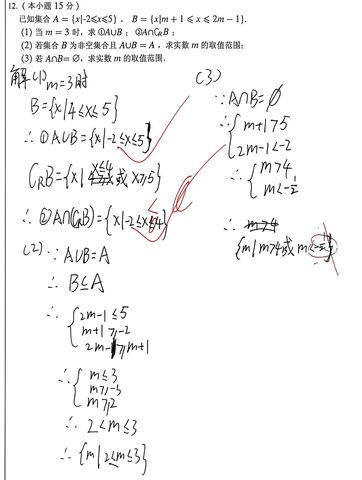 12.(本小题 15 分)
已知集合 A = {x|-2⩽x⩽5}, B = {x|m + 1 ⩽ x ⩽ 2m − 1}.
(1) 当 m = 3 时,求 ①A∪B; ②A∩∁RB;
(2) 若集合 B 为非空集合且 A∪B = A,求实数 m 的取值范围;
(3) 若 A∩B= ∅,求实数 m 的取值范围.
解 (1) m=3时
B={x|4≤x≤5}
∴ ①A∪B={x|-2≤x≤5}
CRB={x|x≤4或 x≥5}
∴ ②A∩(CRB)={x|-2≤x≤4}
(2) ∵ A∪B=A
∴ B⊆A
∴ {2m-1≤5
m+1≥-2
2m-1≥m+1
∴ {m≤3
m≥-3
m≥2
∴ 2<m≤3
∴ {m|2≤m≤3}
(3)
∵A∩B=∅
∴{m+1>5
2m-1<-2
∴{m>4
m<-1/2
∴ m>4
{m|m>4或 m<-1/2}